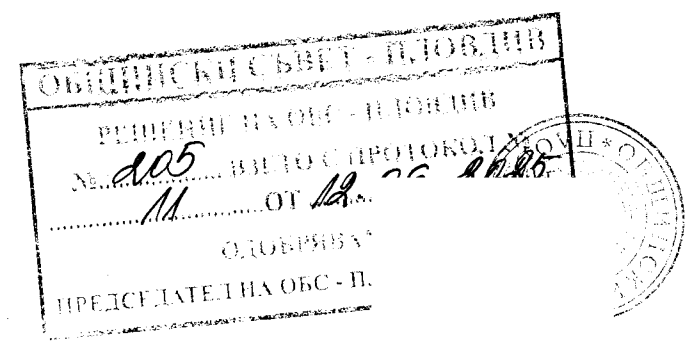 ОБЩИНСКИ СЪВЕТ - ПЛОВДИВ
РЕШЕНИЕ НА ОБС - ПЛОВДИВ
№ 205 ВЗЕТО С ПРОТОКОЛ №
11 ОТ 12.
ОДОБРЯВА
ПРЕДСЕДАТЕЛ НА ОБС - П
ОБЩИНСКИ